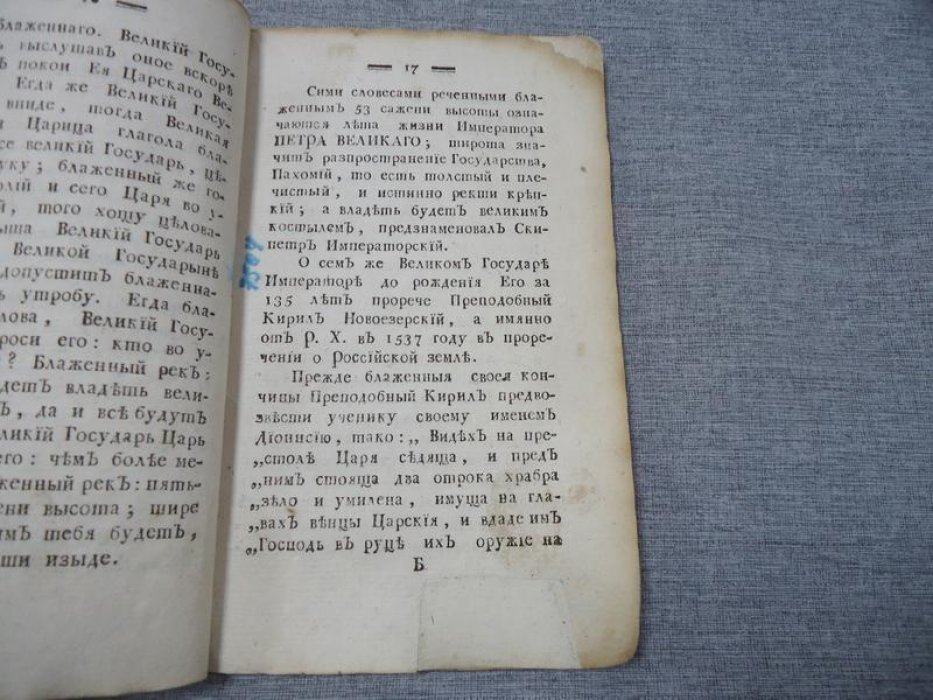 блаженнаго. Великій Госу-
выслушавЪ оное вскорѣ
покои Ея Царскаго Ве-
Егда же Великій Госу-
вниде, тогда Великая
Царица глагола бла-
великій Государь, цѣ-
уку; блаженный же го-
и сего Царя во у-
й, того хощу цѣлова-
Великій Государь
Великой Государынѣ
допуститЪ блаженна-
утробу. Егда бла-
лова, Великій Госу-
роси его: кто во у-
? Блаженный рекЪ:
детЪ владѣть вели-
Ъ, да и всѣ будутЪ
еликій Государь Царь
его: чѣмЪ болѣе ме-
женный рекЪ: пять-
ени высота; шире
имЪ тебя будетЪ,
ши изыде.
17
Сими словесами реченными бла-
женнымЪ 53 сажени высоты озна-
чаются лѣта жизни Императора
ПЕТРА ВЕЛИКАГО; широта зна-
читЪ разпространеніе Государства,
Пахомій, то есть толстый и пле-
чистый, и истинно рекши крѣп-
кій; а владѣть будетЪ великимЪ
костылемЪ, предзнаменовалЪ Ски-
петрЪ Императорскій.
О семЪ же ВеликомЪ Государѣ
Императорѣ до рожденія Его за
135 лѣтЪ прорече Преподобный
КирилЪ Новоезерскій, а имянно
отЪ Р. Х. вЪ 1537 году вЪ проре-
ченіи о Россійской землѣ.
Прежде блаженныя своея кон-
чины Преподобный КирилЪ предво-
звѣсти ученику своему именемЪ
Діонисію, тако: „ ВидѣхЪ на пре-
„столѣ Царя сѣдяща, и предЪ
„нимЪ стояща два отрока храбра
„зѣло и умилена, имуща на гла-
„вахЪ вѣнцы Царскія, и владе имЪ
„Господь вЪ руцѣ ихЪ оружіе на
Б